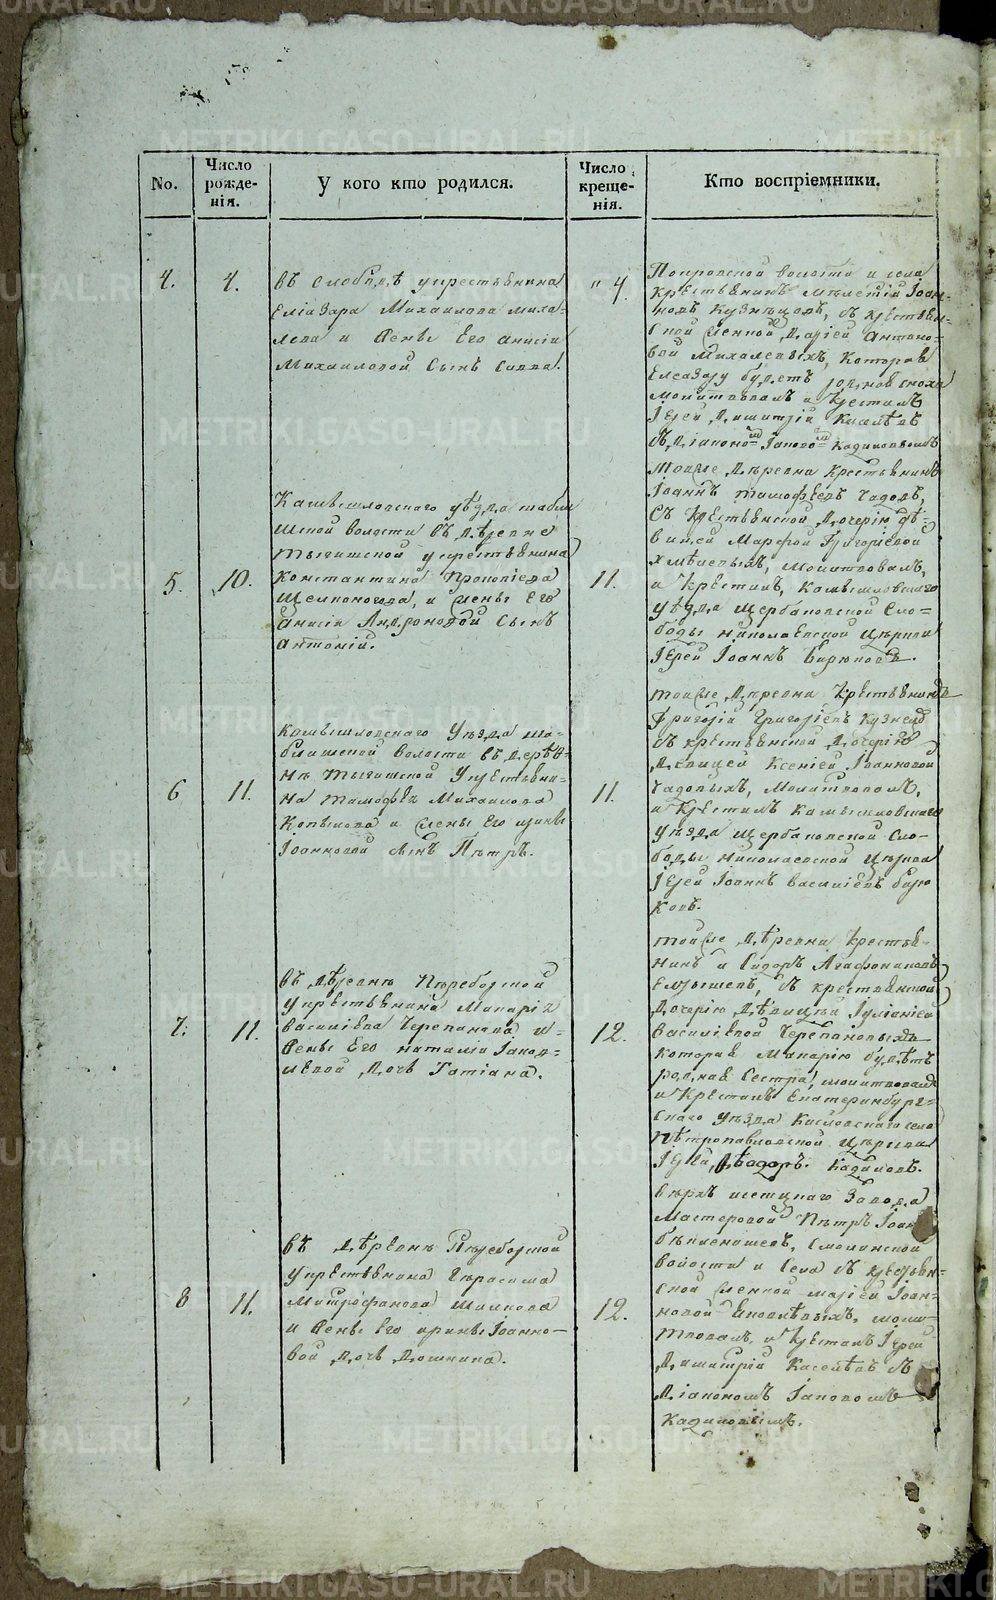 No.
Число рожде-нія.
У кого кто родился.
Число креще-нія.
Кто воспріемники.
4.
4.
въ слободѣ у крестьянина
Еліазара Михаилова Миха-
лева и жены Его Анисіи
Михаиловой Сынъ Савва.
4.
Покровской волости и села
крестьянинъ Мѣлетій Іоан-
новъ Кузнѣцовъ, съ крестьян-
ской женкой Дарьей Антоно-
вой Михалевыхъ, Которая
Елеазару будетъ родная сноха
молитвовалъ и крестилъ
Іерей Димитрій Киселѣвъ
съ Діакономъ Іаковомъ Кадиковымъ
5.
10.
Камышловскаго уѣзда
волости въ деревне
Тыгишской у крестьянина
Константина Прокопіева
Щелконогова, и жены Его
Анисіи Андроновой Сынъ
Антоній.
11.
Тойже Деревни Крестьянинъ
Іоаннъ Тимофѣевъ
Съ Крестьянской Дочерію дѣ-
вицей Марфой Григоріевой
молитвовалъ,
и крестилъ, Камышловскаго
уѣзда Щербаковской Сло-
боды Николаевской Церкви
Іерей Іоаннъ Бирюковъ.
6
11.
Камышловскаго Уѣзда
волости въ дерѣв-
нѣ Тыгишской У крестьяни-
на Тимофѣя Михаилова
Копылова и жены Его Ирины
Іоанновой Сынъ Пѣтръ.
11.
тойже Деревни Крестьянинъ
Григорій Григоріевъ Кузнецовъ
съ крестьянской Дочерію
Девицей Ксеніей Іоанновой
Молитвовалъ,
и Крестилъ Камышловскаго
Уѣзда Щербаковской Сло-
боды Николаевской Церкви
Іерей Іоаннъ Василіевъ Бирю
ковъ.
7.
11.
въ Дѣревнѣ Переборской
у крестьянина Макарія
Василіева Черепанова и
жены Его Наталіи Іаков-
левой Дочь Татіана.
12.
тойже Дѣревни крестья-
нинъ Сидоръ Агафониковъ
съ крестьянской
Дочерію Дѣвицей Іуліаніей
Василіевой Черепановыхъ
которая Макарію будѣтъ
родная Сестра, молитвовалъ
и крестилъ Екатеринбург-
скаго уѣзда Кисловскаго села
Пѣтропавловской Церкви
Іерей Ѳеодоръ Кадиковъ.
8
11.
въ Дѣревнѣ Перебоpской
у крестьянина Герасима
Митрофанова
и жены Его Ирины Іоанно-
вой Дочь Домника.
12.
Вѣрхъ исетскаго Завода
Мастеровой Пѣтръ
Смолинской
волости и Села съ крестьян-
ской женкой Маріей Іоан-
новой молит-
вовалъ, и Крестилъ Іерей
Димитрій Киселѣвъ съ
Діакономъ Іаковомъ
Кадиковымъ.
METRIKI.GASO-URAL.RU